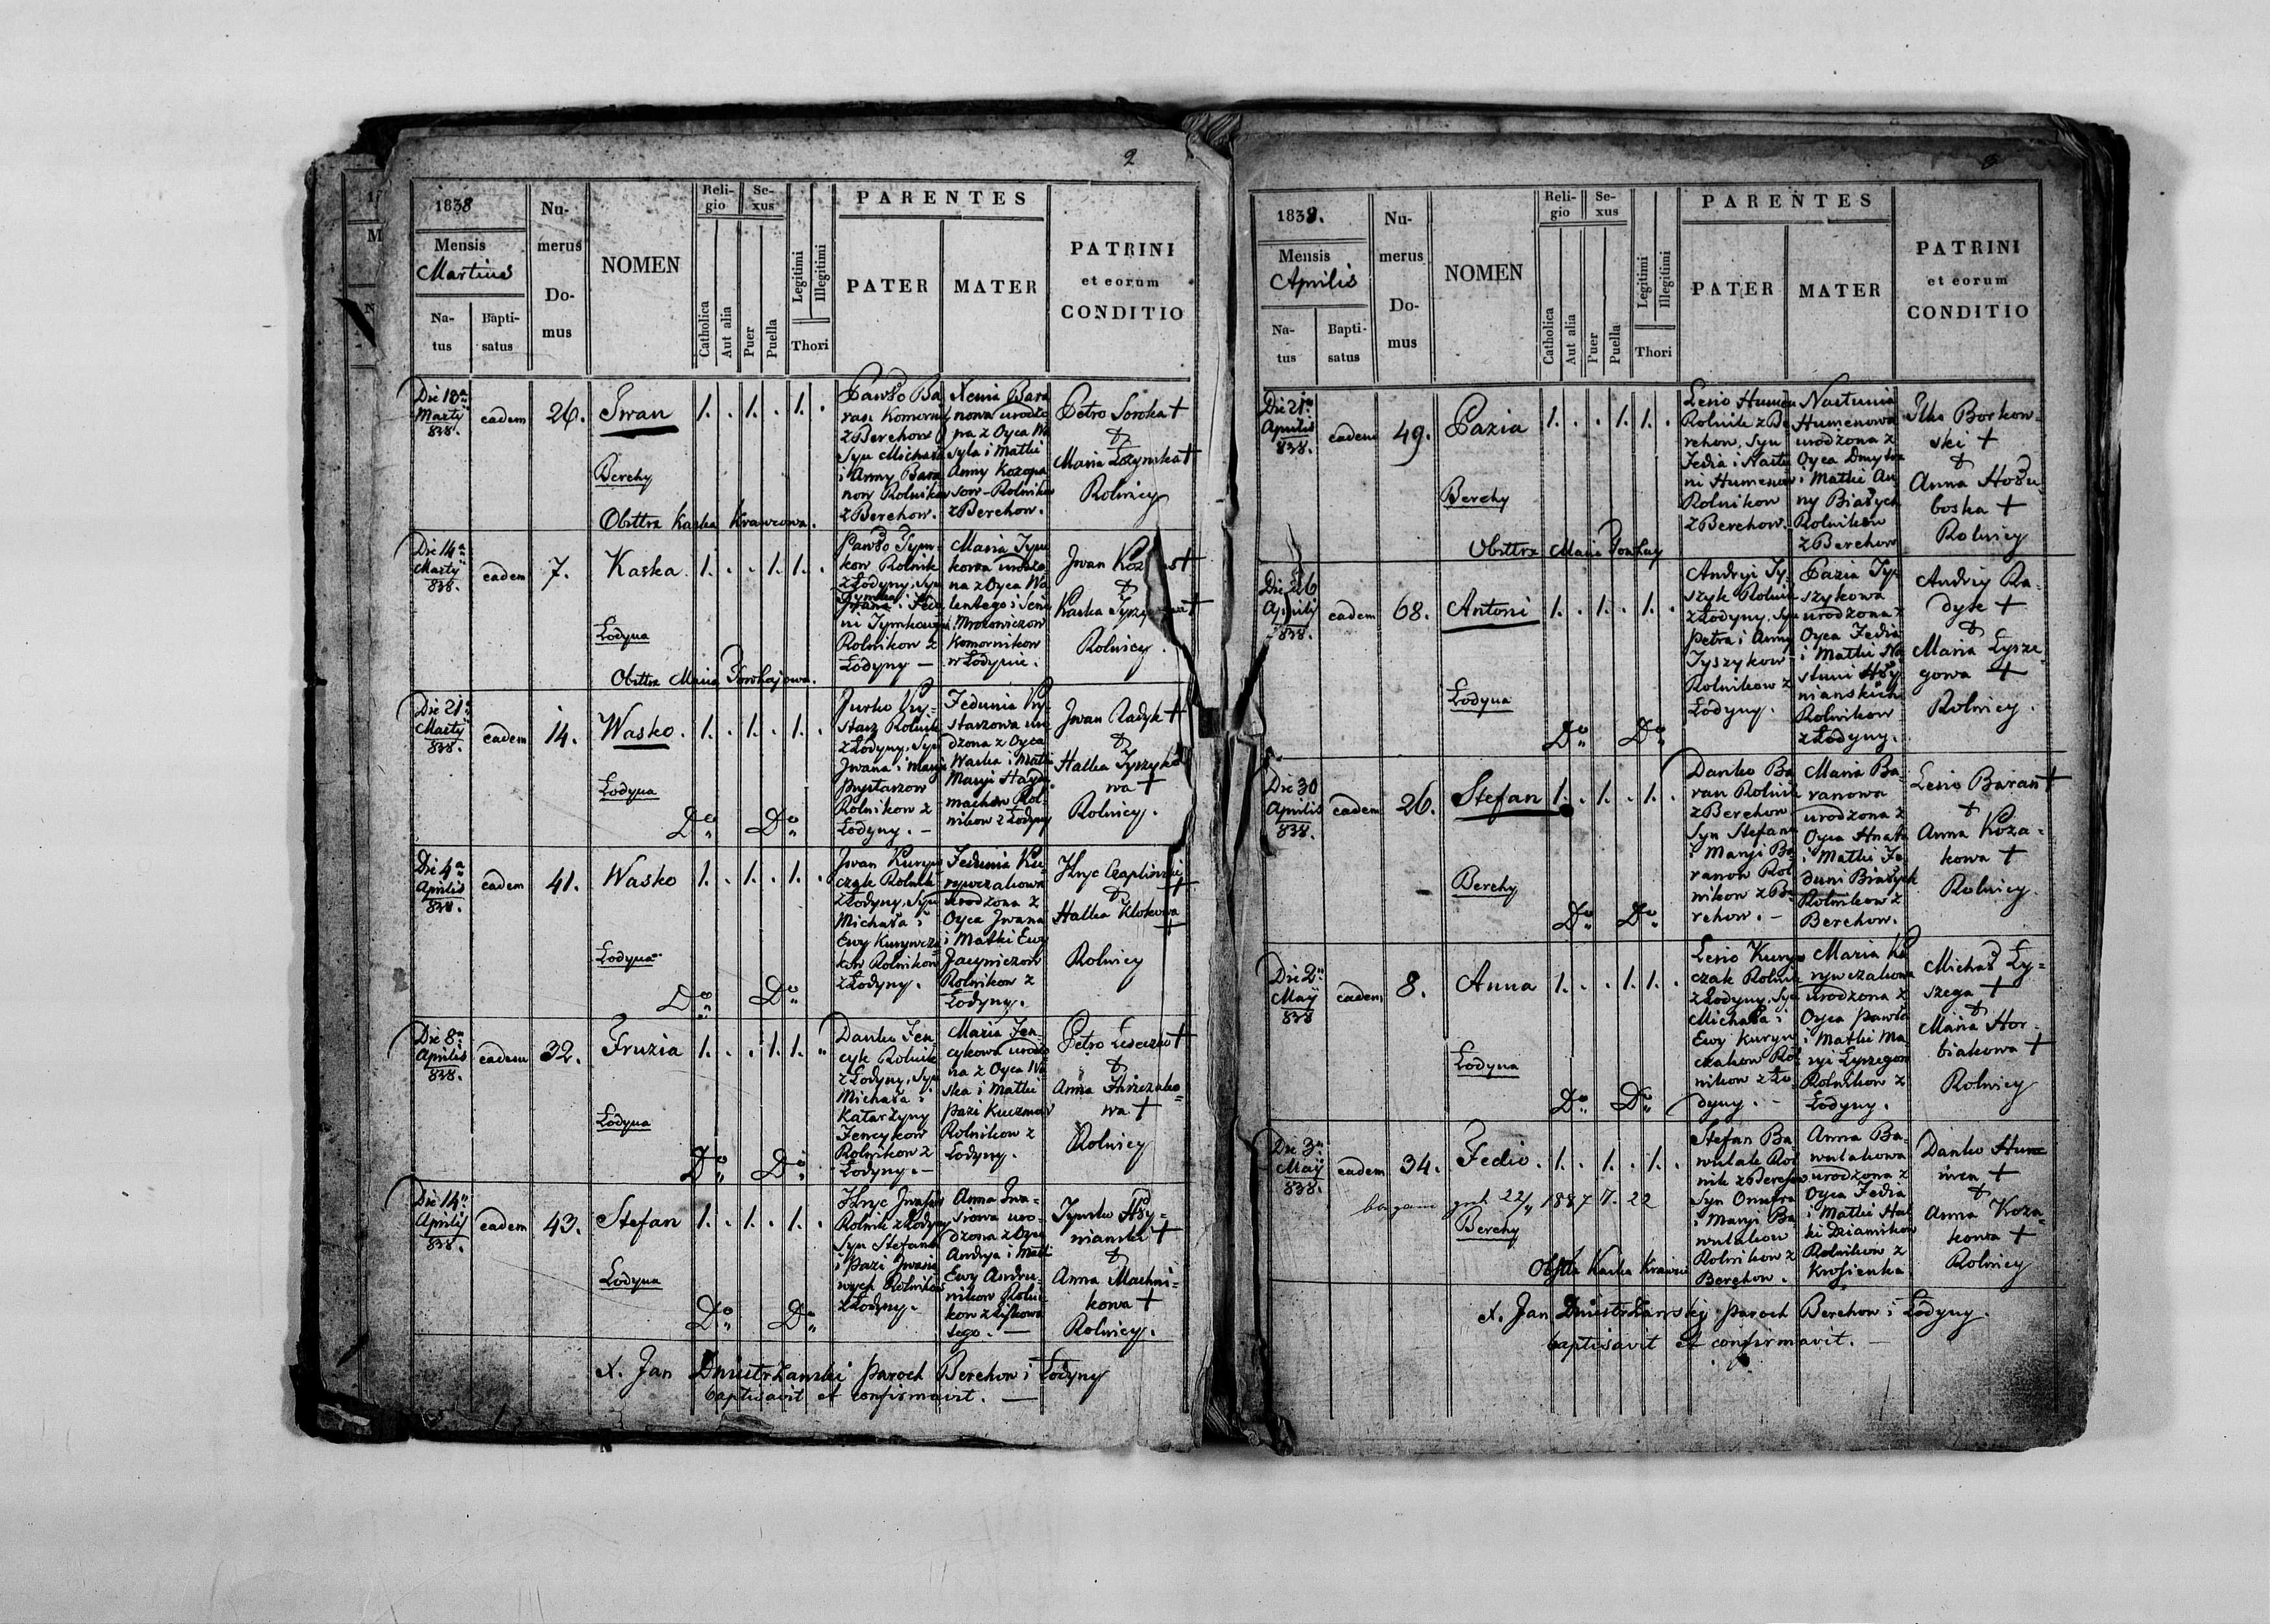 2
1838
Mensis
Martius
Na-
tus
Bapti-
satus
Nu-
merus
Do-
mus
NOMEN
Reli-
gio
Catholica
Aut alia
Se-
xus
Puer
Puella
Legitimi
Illegitimi
Thori
PARENTES
PATER
MATER
PATRINI
et eorum
CONDITIO
Marty
838.
eadem
26.
Iwan
1. . 1. . 1. .
Berchy
Pawło Ba
ran Komornik
z Berchow
Syn Michała
i Anny Bara
now Rolnikow
z Berchow.
Xenia Bara
nowa urodzo
na z Oyca Wa
syla i Matki
Anny Kozopa
sow - Rolnikow
z Berchow.
Petro Soroka +
&
Maria Łozynska +
Rolnicy
Obsttrx Kaska Krawcowa.
Die 14a
Marty
838.
eadem
7.
Kaska
1. . . 1. 1. .
Łodyna
Pawło Tym-
kow Rolnik
z Łodyny, Syn
Rolnikow z
Łodyny —
Maria Tym
kowa urodzo
na z Oyca Wa
lentego i Seni
Mrozowiczow
Komornikow
w Łodynie.
Iwan
&
Kaska
Rolnicy.
Obsttrx Maria
Die 21a
Marty
838.
eadem
14.
Wasko.
1. . 1. . 1. .
Łodyna
Jurko Pry-
starz Rolnik
z Łodyny, Syn
Iwana i Maryi
Prystarzow
Rolnikow z
Łodyny. —
Fedunia Pry-
starzowa uro
dzona z Oyca
Waska i Matki
Maryi Hayda
machow Rol-
nikow z Łodyny
Iwan Radyk +
&
Halka Tyszyko
wa +
Rolnicy.
Do Do
Die 4a
Aprilis
838.
eadem
41.
Wasko
1. . 1. . 1. .
Łodyna
Iwan Kuryw
czak Rolnik
z Łodyny, Syn
Michała i
Ewy Kurywcza
kow Rolnikow
z Łodyny.
Fedunia Ku-
rywczakowa
Urodzona z
Oyca Iwana
i Matki Ewy
Jacyniczow
Rolnikow z
Łodyny.
Hryc Czaplinski +
&
Halka Klokowa +
Rolnicy
Do Do
Die 8a
Aprilis
838.
eadem
32.
Fruzia
1. . . 1. 1. .
Łodyna
Danko Fen
cyk Rolnik
z Łodyny, Syn
Michała i
Katarzyny
Fencykow
Rolnikow z
Łodyny. —
Maria Fen-
cykowa urodzo
na z Oyca Wa
ska i Matki
Pazi Kuzmow
Rolnikow z
Łodyny.
Petro Ledeczko +
&
Anna
wa +
Rolnicy
Do Do
Die 14a
Aprilis
838.
eadem
43.
Stefan
1. . 1. . 1. .
Łodyna
Hryc Iwasiow
Rolnik z Łodyny
Syn Stefana
i Pazi Iwasio
wych Rolnikow
z Łodyny.
Anna Iwa-
siowa uro-
dzona z Oyca
Andrya i Matki
Ewy Andru-
nikow Rolni-
kow z Liskowa
tego. —
Tymko Hły-
nianski +
&
Anna Machni-
kowa +
Rolnicy.
Do Do
X. Jan Dniestrzanski Paroch Berchow i Łodyny
baptisavit et confirmavit. —
1838.
Mensis
Aprilis
Na-
tus
Bapti-
satus
Nu-
merus
Do-
mus
NOMEN
Reli-
gio
Catholica
Aut alia
Se-
xus
Puer
Puella
Legitimi
Illegitimi
Thori
PARENTES
PATER
MATER
PATRINI
et eorum
CONDITIO
Die 21a
Aprilis
838.
eadem
49.
Pazia
1. . . 1. 1. .
Berchy
Lesio Humen
Rolnik z Be
rchow, Syn
Fedia i Nastu
ni Humenow
Rolnikow
z Berchow.
Nastunia
Humenowa
urodzona z
Oyca Dmytra
i Matki An
ny Białych
Rolnikow
z Berchow
Ilko Borkow-
ski +
&
Anna Hołu-
boska +
Rolnicy
Obsttrx Maria
Die 26
Aprilis
838.
eadem
68.
Antoni
1. . 1. . 1. .
Łodyna
Andryi Ty-
szyk Rolnik
z Łodyny, Syn
Petra i Anny
Tyszykow
Rolnikow z
Łodyny.
Pazia Ty-
szykowa
urodzona z
Oyca Fedia
i Matki Na
stuni Hły
nianskich
Rolnikow
z Łodyny.
Andriy Ra-
dyk +
&
Maria Łysze-
gowa +
Rolnicy.
Do Do
Die 30
Aprilis
838.
eadem
26.
Stefan
1. . 1. . 1. .
Berchy
Danko Ba-
ran Rolnik
z Berchow
Syn Stefana
i Maryi Ba-
ranow Rol
nikow z Be-
rchow. —
Maria Ba-
ranowa
urodzona z
Oyca Hnata
i Matki Fe
duni Białych
Rolnikow z
Berchow.
Lesio Baran +
&
Anna Koza-
kowa +
Rolnicy.
Do Do
Die 2a
May
838
eadem
8.
Anna
1. . . 1. 1. .
Łodyna
Lesio Kuryw
czak Rolnik
z Łodyny, Syn
Michała i
Ewy Kuryw
czakow Rol
nikow z Ło-
dyny. —
Maria Ku
rywczakowa
urodzona z
Oyca Pawła
i Matki Ma
ryi Łyszegow
Rolnikow z
Łodyny.
Michał Ły-
szega +
&
Maria Hor-
biakowa +
Rolnicy
Do Do
Die 3a
May
838.
eadem
34.
Fedio.
1. . 1. . 1. .
22/11 1887 7. 22
Berchy
Stefan Ba-
wulak Rol
nik z Berchow
Syn Onufra
i Maryi Ba
wulakow
Rolnikow z
Berchow.
Anna Ba-
wulakowa
urodzona z
Oyca Fedia
i Matki Hal
ki Dziamikow
Rolnikow z
Krościenka
Danko
&
Anna Koza-
kowa +
Rolnicy
Obsttr Kaska
X. Jan Dniestrzanski Paroch Berchow i Łodyny.
baptisavit et confirmavit. —